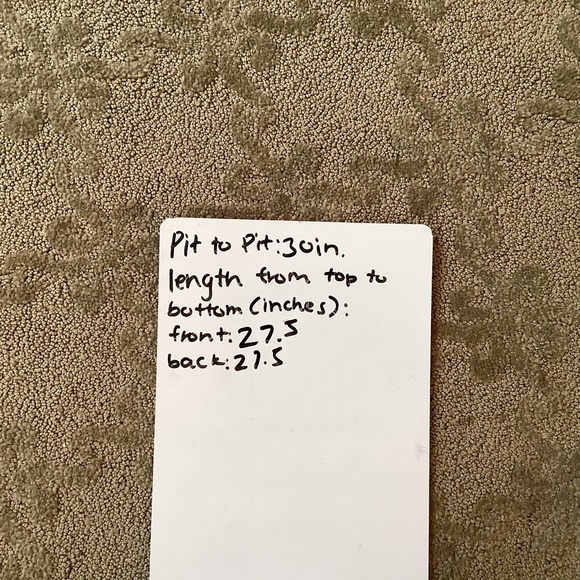 Pit to Pit: 30in.
length from top to
bottom (inches):
front: 27.5
back: 27.5